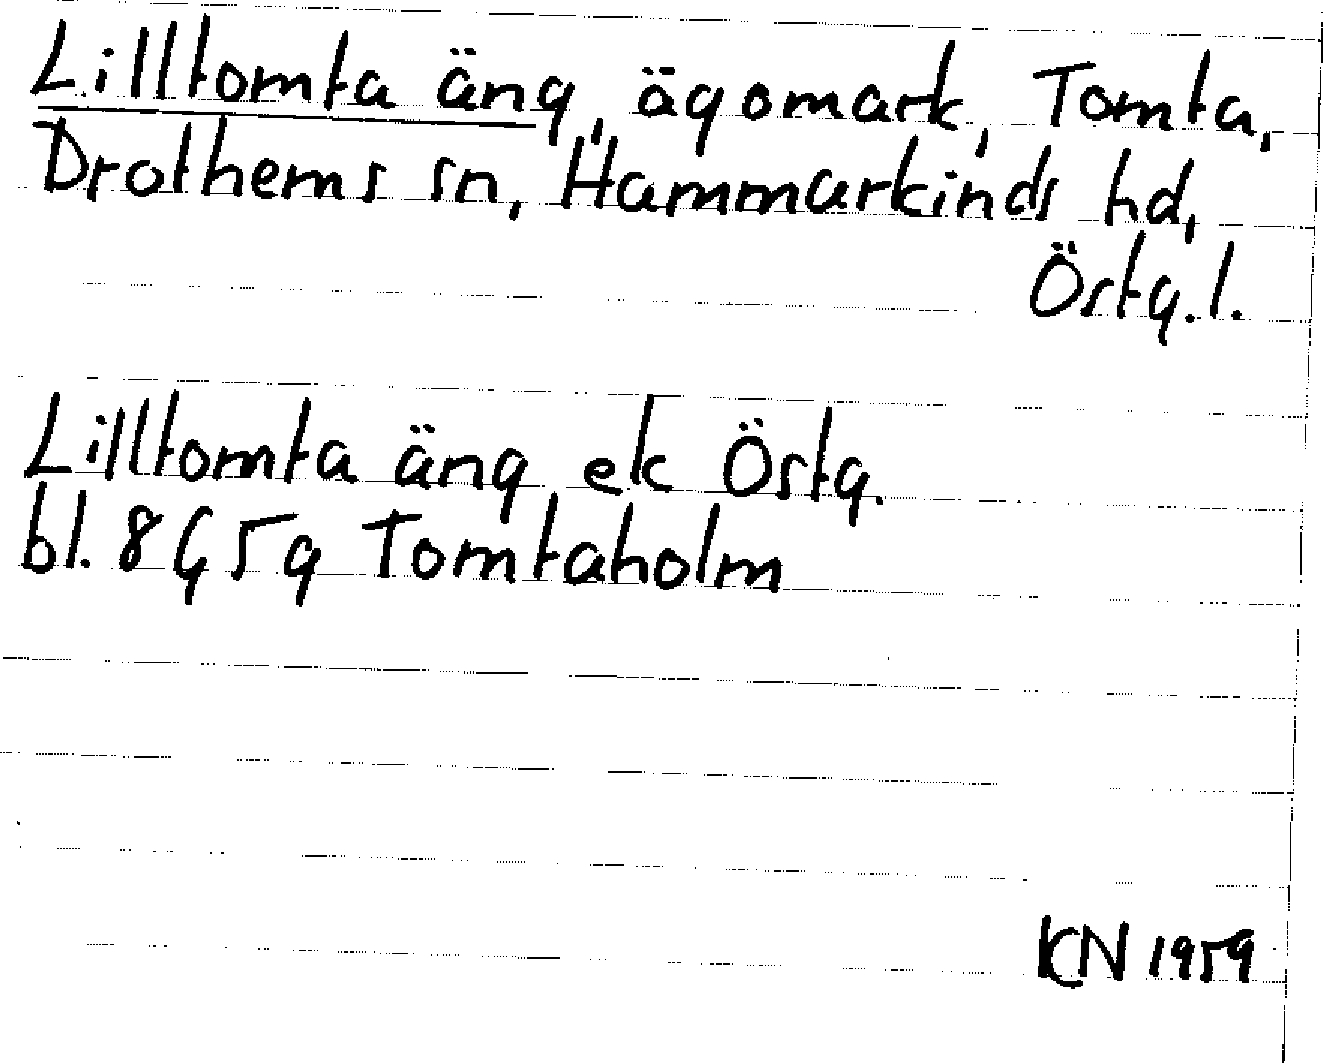 Lilltomta äng, ägomark, Tomta,
Drothems sn, Hammarkinds hd,
Östg.l.
Lilltomta äng ek Östg.
bl. 8G5g Tomtaholm
KN 1959